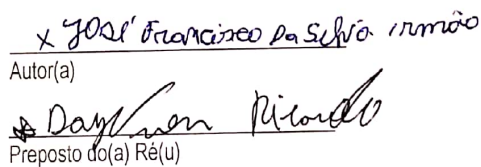 x José Francisco Da Silva irmão
Autor(a)
Ricardo
Preposto do(a) Ré(u)